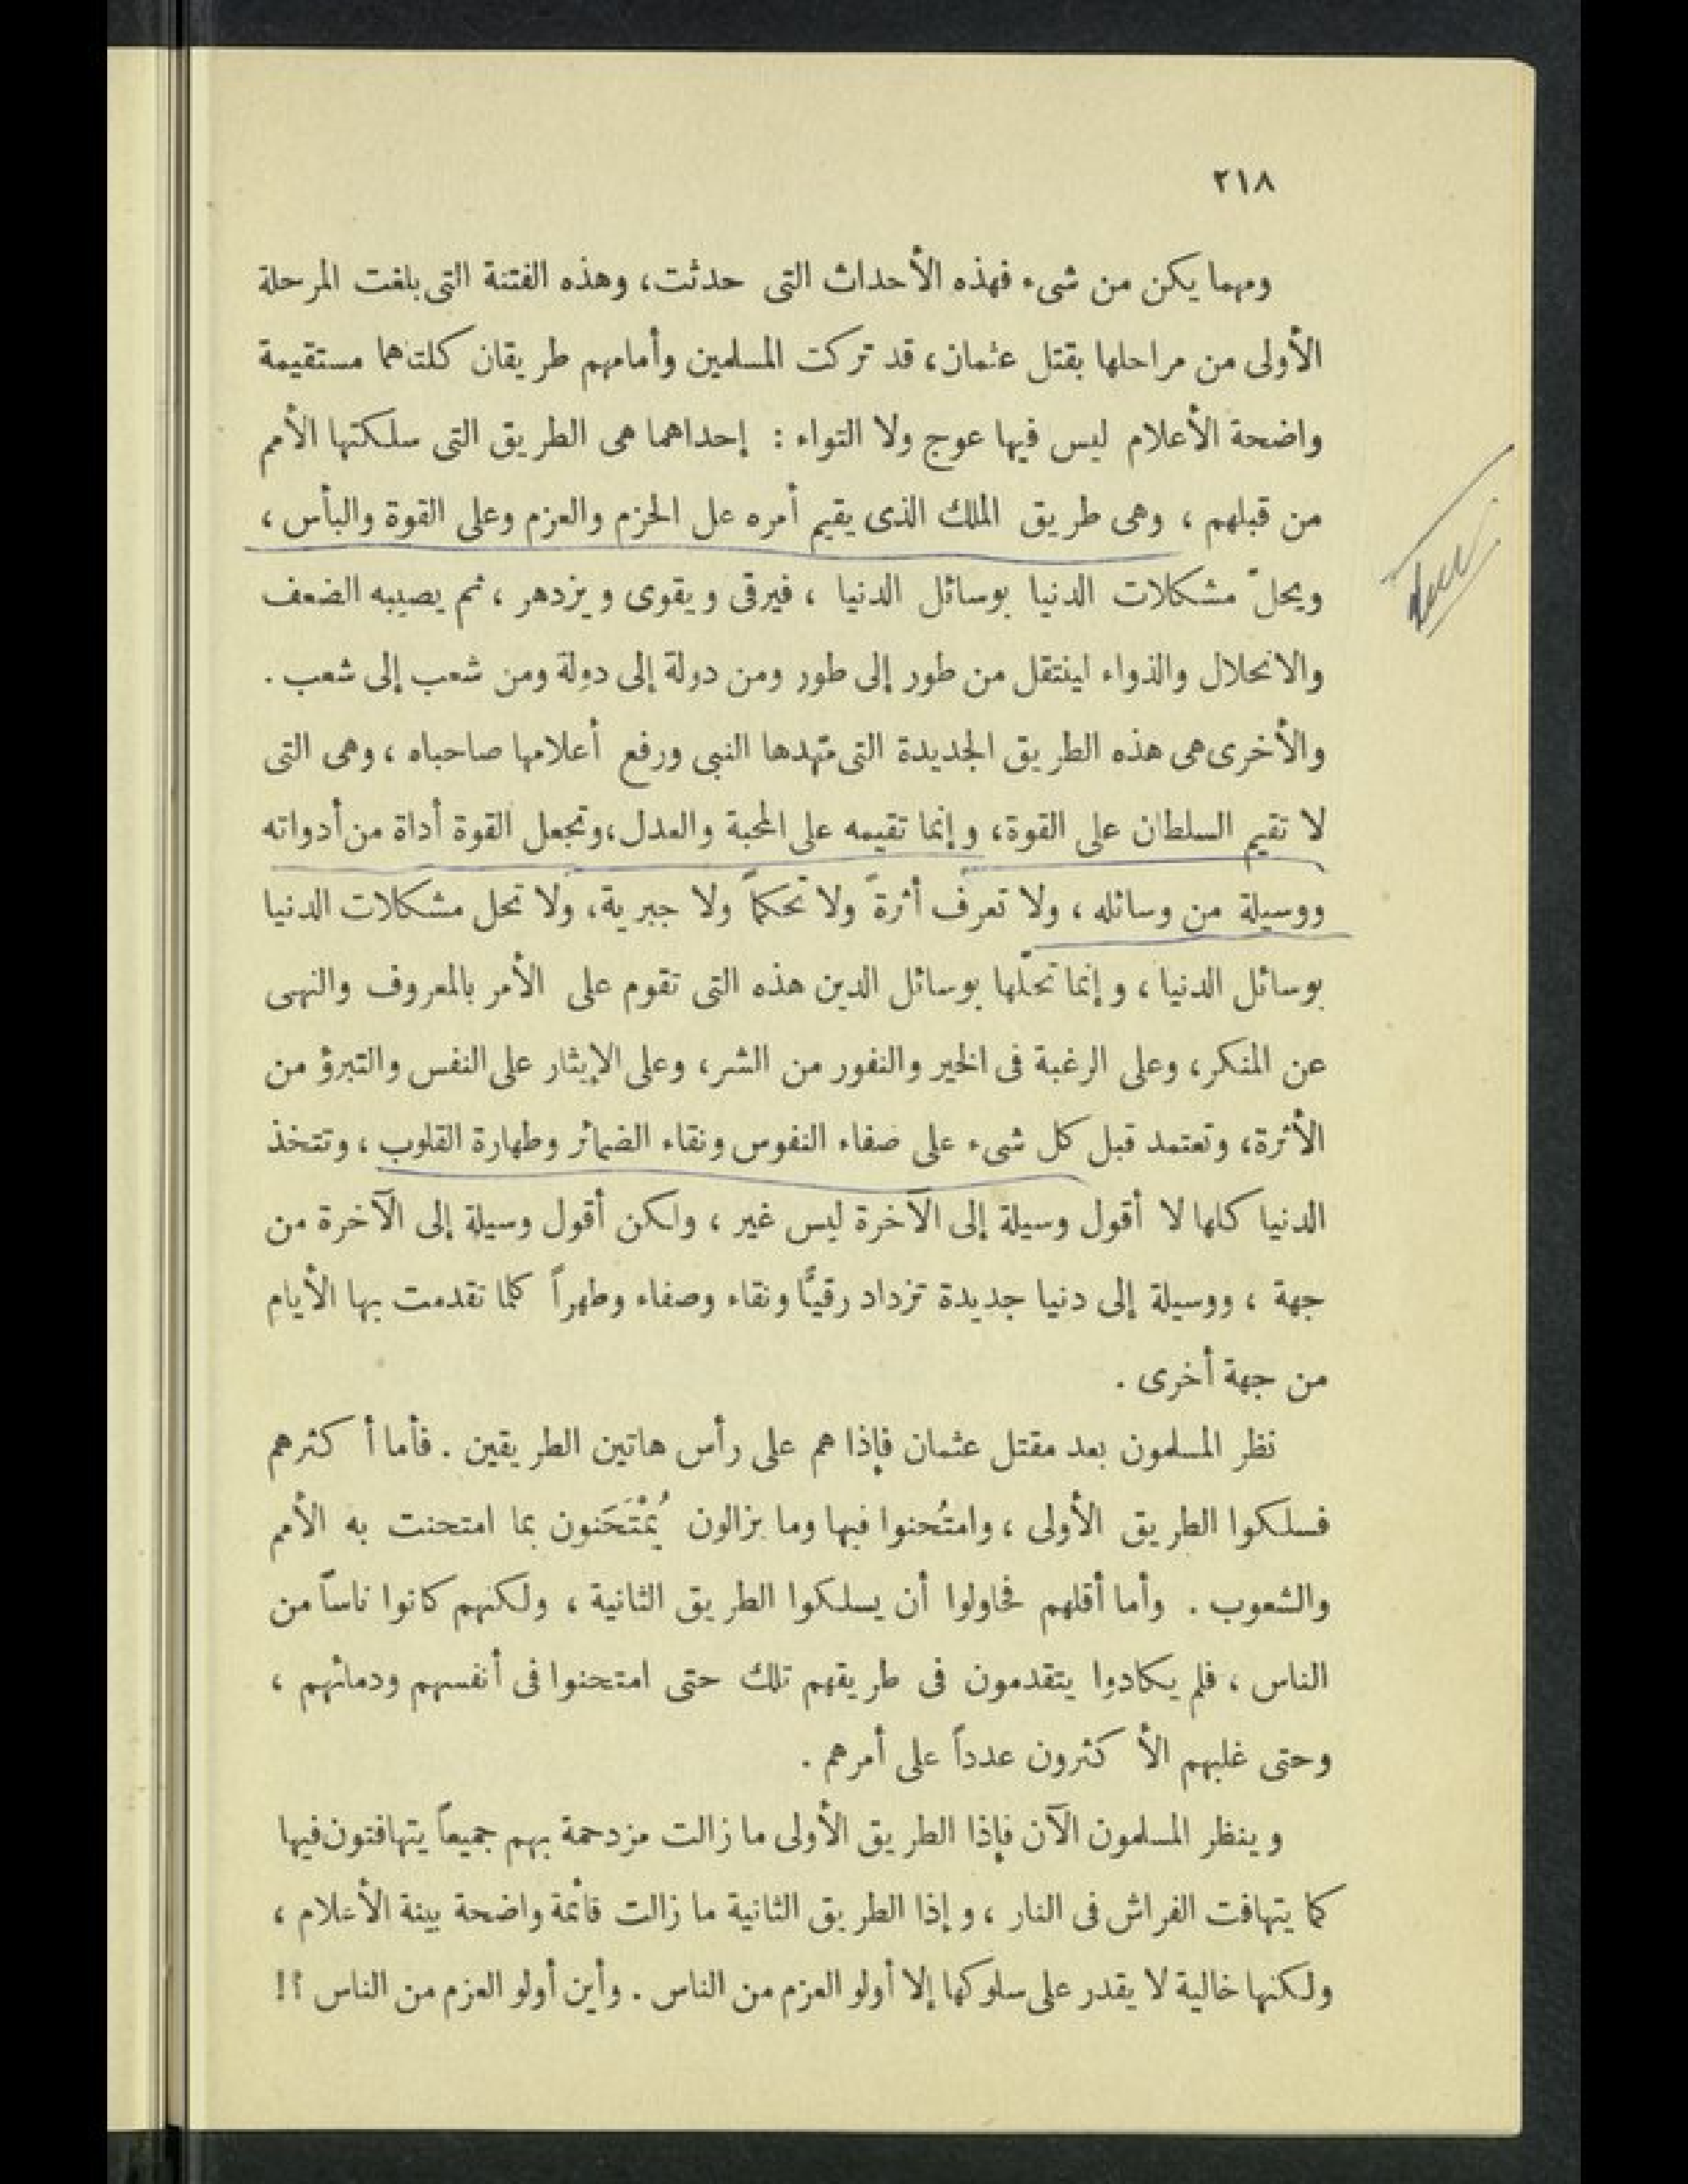 ٢١٨
ومهما يكن من شىء فهذه الأحداث التى حدثت، وهذه الفتنة التى بلغت المرحلة
الأولى من مراحلها بقتل عثمان، قد تركت المسلمين وأمامهم طريقان كلتاهما مستقيمة
واضحة الأعلام ليس فيها عوج ولا التواء : إحداهما هى الطريق التى سلكتها الأمم
من قبلهم ، وهى طريق الملك الذى يقيم أمره على الحزم والعزم وعلى القوة والبأس ،
ويحلّ مشكلات الدنيا بوسائل الدنيا ، فيرقى ويقوى ويزدهر ، ثم يصيبه الضعف
والانحلال والذواء لينتقل من طور إلى طور ومن دولة إلى دولة ومن شعب إلى شعب .
والأخرى هى هذه الطريق الجديدة التى مهّدها النبى ورفع أعلامها صاحباه ، وهى التى
لا تقيم السلطان على القوة، وإنما تقيمه على المحبة والعدل، وتجعل القوة أداة من أدواته
ووسيلة من وسائله ، ولا تعرف أثرةً ولا تحكماً ولا جبرية، ولا تحل مشكلات الدنيا
بوسائل الدنيا ، وإنما تحلّها بوسائل الدين هذه التى تقوم على الأمر بالمعروف والنهى
عن المنكر، وعلى الرغبة فى الخير والنفور من الشر، وعلى الإيثار على النفس والتبرؤ من
الأثرة، وتعتمد قبل كل شىء على صفاء النفوس ونقاء الضمائر وطهارة القلوب ، وتتخذ
الدنيا كلها لا أقول وسيلة إلى الآخرة ليس غير ، ولكن أقول وسيلة إلى الآخرة من
جهة ، ووسيلة إلى دنيا جديدة تزداد رقيًّا ونقاء وصفاء وطهراً كلما تقدمت بها الأيام
من جهة أخرى .
نظر المسلمون بعد مقتل عثمان فإذا هم على رأس هاتين الطريقين . فأما أكثرهم
فسلكوا الطريق الأولى ، وامتُحنوا فيها وما يزالون يُمْتَحَنون بما امتحنت به الأمم
والشعوب . وأما أقلهم فحاولوا أن يسلكوا الطريق الثانية ، ولكنهم كانوا ناساً من
الناس ، فلم يكادوا يتقدمون فى طريقهم تلك حتى امتحنوا فى أنفسهم ودمائهم ،
وحتى غلبهم الأكثرون عدداً على أمرهم .
وينظر المسلمون الآن فإذا الطريق الأولى ما زالت مزدحمة بهم جميعاً يتهافتون فيها
كما يتهافت الفراش فى النار ، وإذا الطريق الثانية ما زالت قائمة واضحة بينة الأعلام ،
ولكنها خالية لا يقدر على سلوكها إلا أولو العزم من الناس . وأين أولو العزم من الناس ؟!